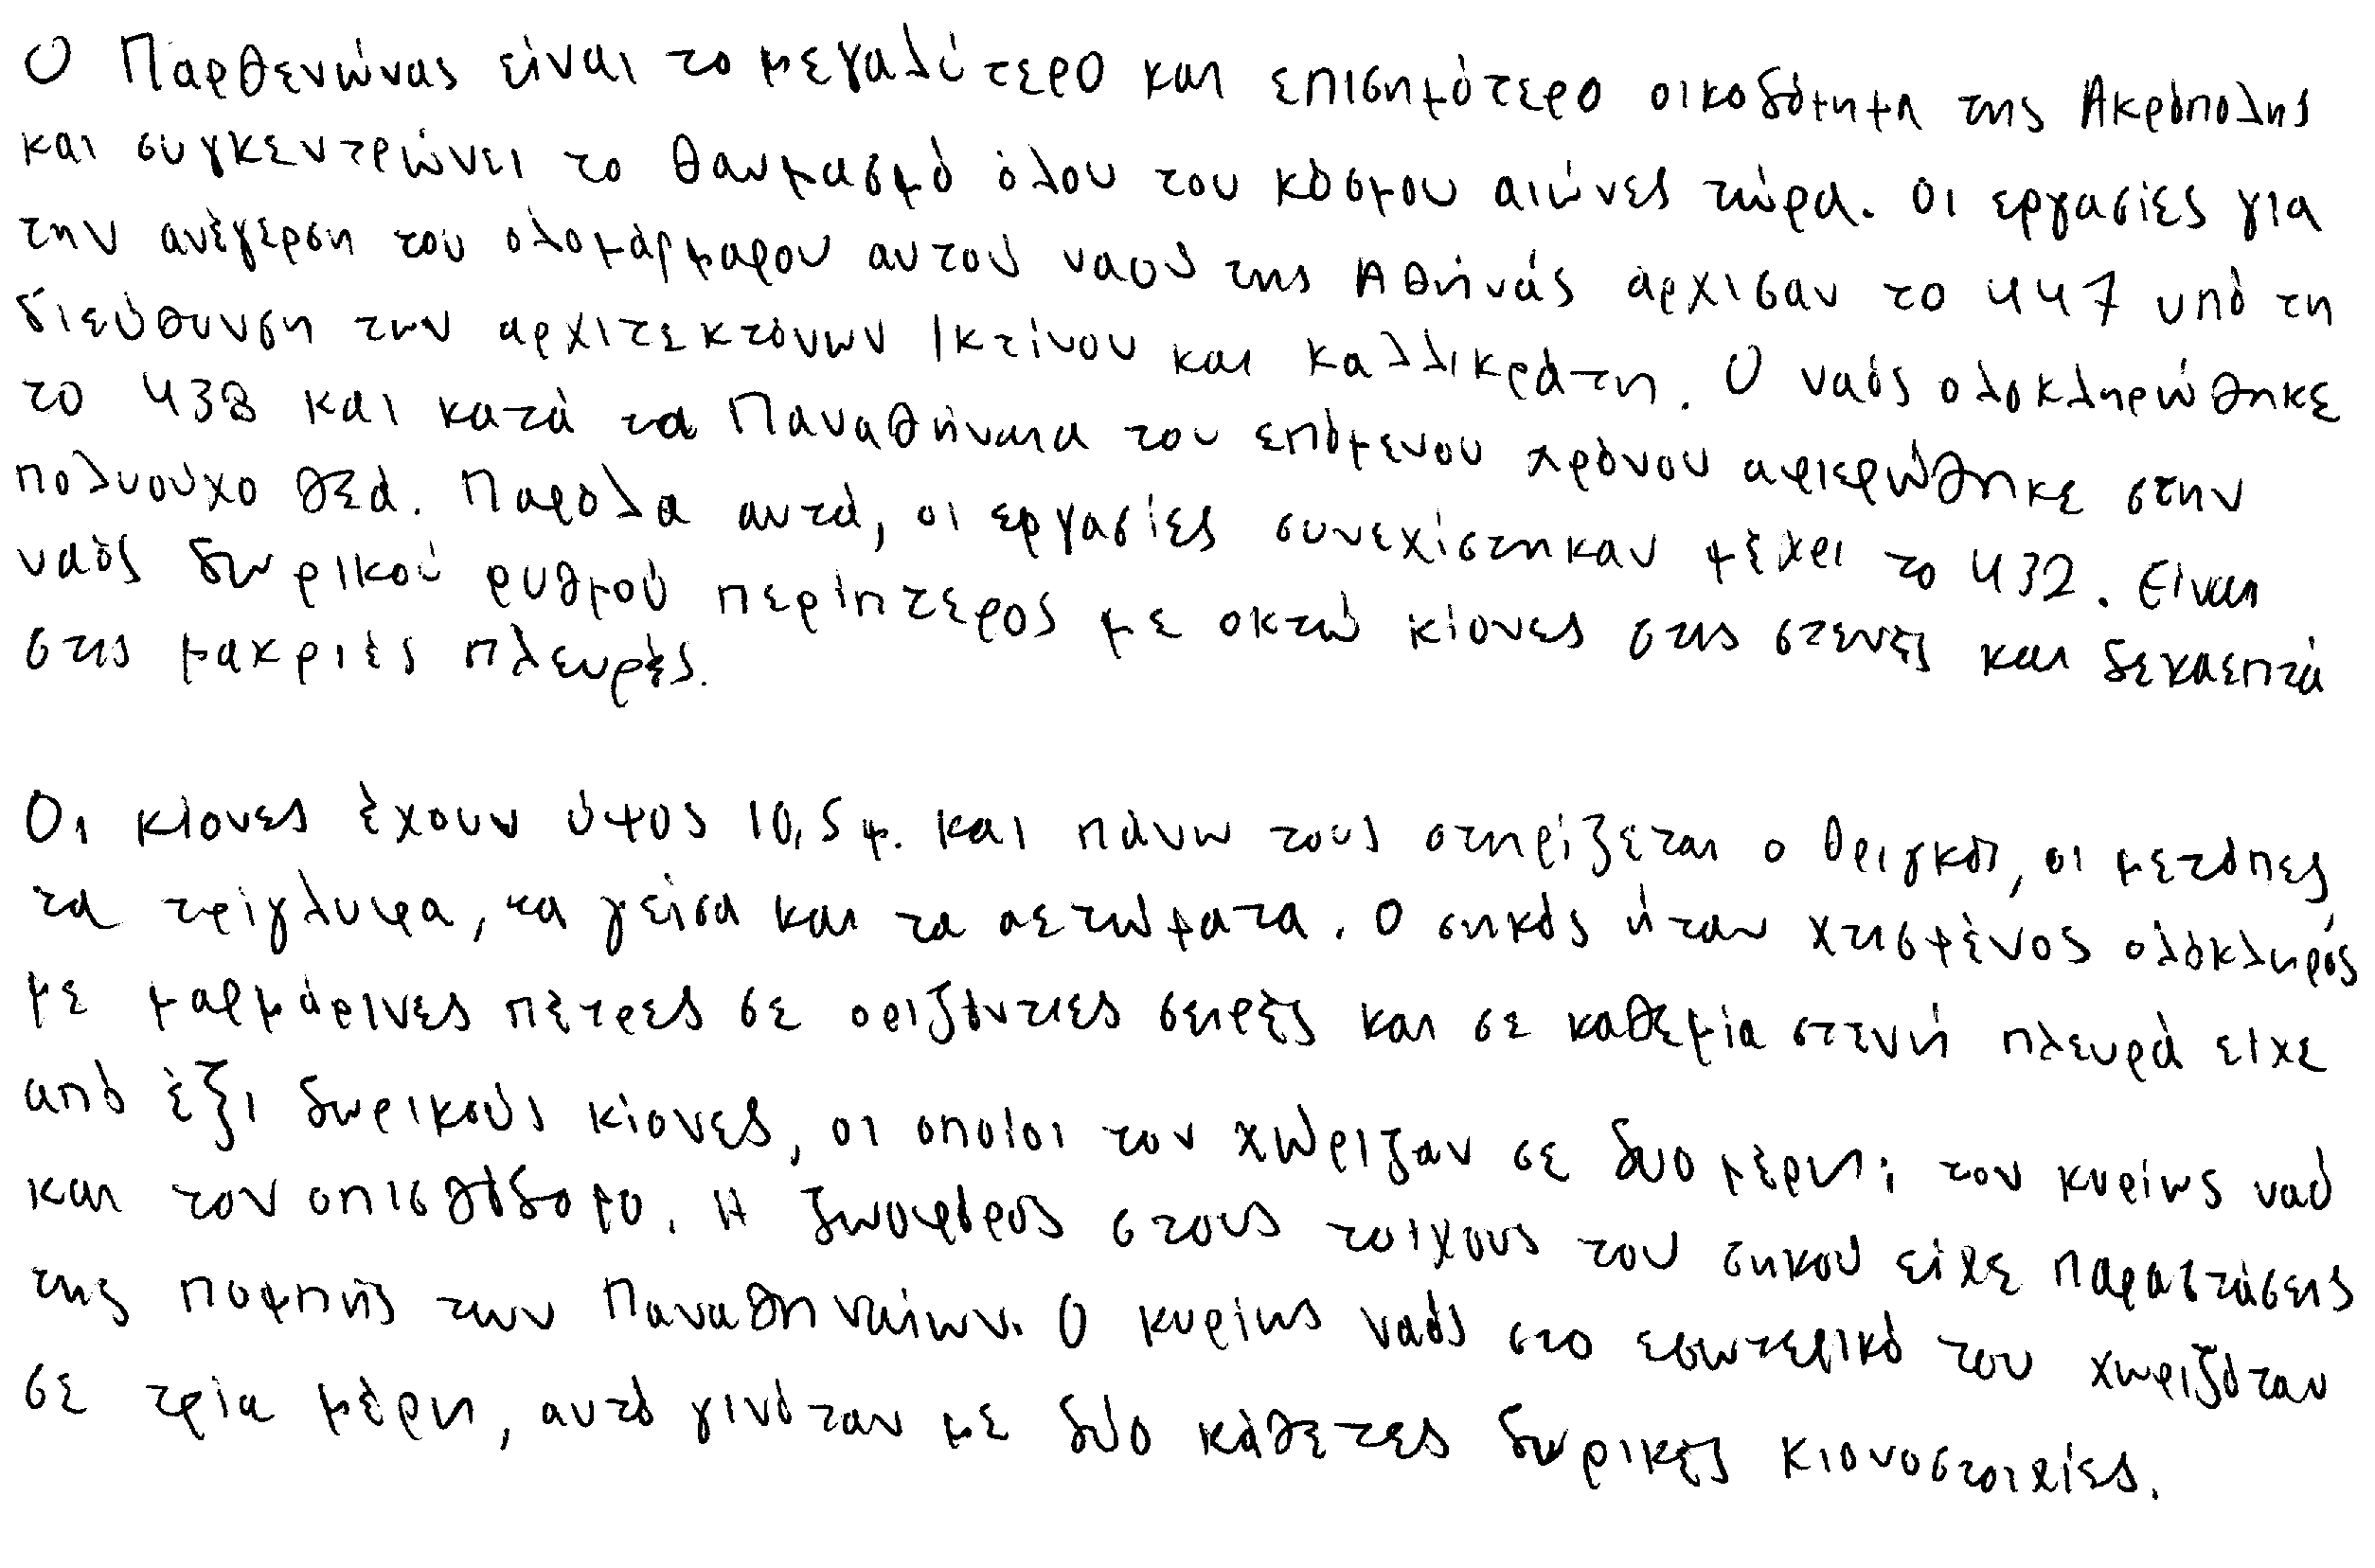 Ο Παρθενώνας είναι το μεγαλύτερο και επισημότερο οικοδόμημα της Ακρόπολης
και συγκεντρώνει το θαυμασμό όλου του κόσμου αιώνες τώρα. Οι εργασίες για
την ανέγερση του ολομάρμαρου αυτού ναού της Αθήνάς άρχισαν το 447 υπό τη
διεύθυνση των αρχιτεκτόνων Ικτίνου και Καλλικράτη. Ο ναός ολοκληρώθηκε
το 438 και κατά τα Παναθήναια του επόμενου χρόνου αφιερώθηκε στην
πολυούχο θεά. Παρόλα αυτά, οι εργασίες συνεχίστηκαν μέχρι το 432. Είναι
ναός δωρικού ρυθμού περίπτερος με οκτώ κίονες στις στενές και δεκαεπτά
στις μακριές πλευρές.
Οι κίονες έχουν ύψος 10,5 μ. και πάνω τους στηρίζεται ο θριγκός, οι μετόπες,
τα τρίγλυφα, τα γείσα και τα αετώματα. Ο σηκός ήταν χτισμένος ολόκληρός
με μαρμάρινες πέτρες σε οριζόντιες σειρές και σε καθεμία στενή πλευρά είχε
από έξι δωρικούς κίονες, οι οποίοι τον χώριζαν σε δυο μέρη: τον κυρίως ναό
και τον οπισθόδομο. Η ζωοφόρος στους τοίχους του σηκού είχε παραστάσεις
της πομπής των Παναθηναίων. Ο κυρίως ναός στο εσωτερικό του χωριζόταν
σε τρία μέρη, αυτό γινόταν με δύο κάθετες δωρικές κιονοστοιχίες.